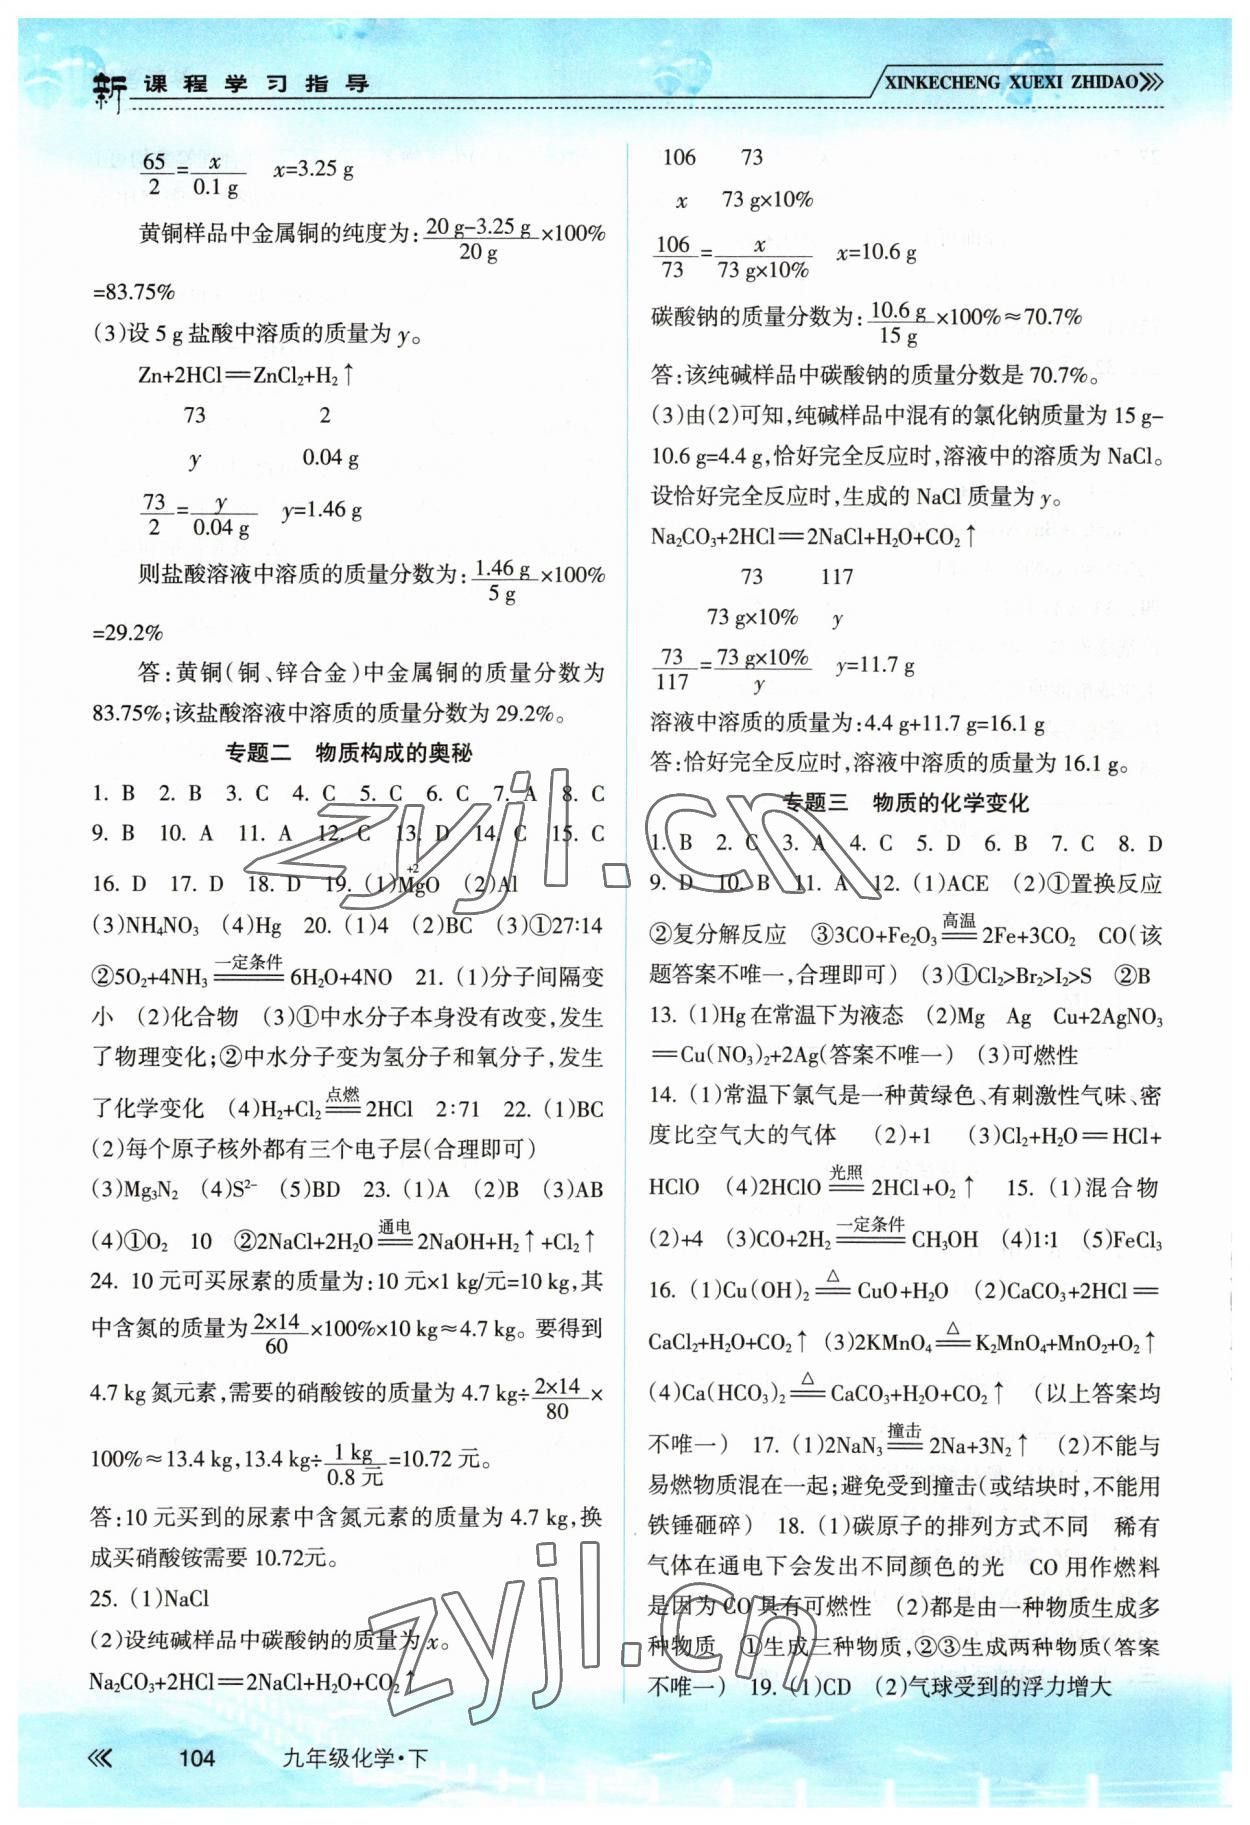 新课程学习指导
XINKECHENG XUEXI ZHIDAO
65/2=x/0.1 g  x=3.25 g
黄铜样品中金属铜的纯度为:(20 g-3.25 g)/20 g×100%
=83.75%
(3)设 5 g 盐酸中溶质的质量为 y。
Zn+2HCl══ZnCl₂+H₂↑
73  2
y  0.04 g
73/2=y/0.04 g  y=1.46 g
则盐酸溶液中溶质的质量分数为:1.46 g/5 g×100%
=29.2%
答:黄铜(铜、锌合金)中金属铜的质量分数为
83.75%;该盐酸溶液中溶质的质量分数为 29.2%。
专题二 物质构成的奥秘
1. B 2. B 3. C 4. C 5. C 6. C 7. A 8. C
9. B 10. A 11. A 12. C 13. D 14. C 15. C
16. D 17. D 18. D 19. (1)Mg(+2)O (2)Al
(3)NH₄NO₃ (4)Hg 20. (1)4 (2)BC (3)①27∶14
②5O₂+4NH₃ 一定条件══ 6H₂O+4NO 21. (1)分子间隔变
小 (2)化合物 (3)①中水分子本身没有改变,发生
了物理变化;②中水分子变为氢分子和氧分子,发生
了化学变化 (4)H₂+Cl₂ 点燃══ 2HCl 2∶71 22. (1)BC
(2)每个原子核外都有三个电子层(合理即可)
(3)Mg₃N₂ (4)S²⁻ (5)BD 23. (1)A (2)B (3)AB
(4)①O₂ 10 ②2NaCl+2H₂O 通电══ 2NaOH+H₂↑+Cl₂↑
24. 10 元可买尿素的质量为:10 元×1 kg/元=10 kg,其
中含氮的质量为 2×14/60 ×100%×10 kg≈4.7 kg。要得到
4.7 kg 氮元素,需要的硝酸铵的质量为 4.7 kg÷ 2×14/80 ×
100%≈13.4 kg,13.4 kg÷ 1 kg/0.8 元 =10.72 元。
答:10 元买到的尿素中含氮元素的质量为 4.7 kg,换
成买硝酸铵需要 10.72元。
25. (1)NaCl
(2)设纯碱样品中碳酸钠的质量为 x。
Na₂CO₃+2HCl══2NaCl+H₂O+CO₂↑
106  73
x  73 g×10%
106/73=x/(73 g×10%)  x=10.6 g
碳酸钠的质量分数为:10.6 g/15 g×100%≈70.7%
答:该纯碱样品中碳酸钠的质量分数是 70.7%。
(3)由(2)可知,纯碱样品中混有的氯化钠质量为 15 g-
10.6 g=4.4 g,恰好完全反应时,溶液中的溶质为 NaCl。
设恰好完全反应时,生成的 NaCl 质量为 y。
Na₂CO₃+2HCl══2NaCl+H₂O+CO₂↑
73  117
73 g×10%  y
73/117=73 g×10%/y  y=11.7 g
溶液中溶质的质量为:4.4 g+11.7 g=16.1 g
答:恰好完全反应时,溶液中溶质的质量为 16.1 g。
专题三 物质的化学变化
1. B 2. C 3. A 4. C 5. D 6. B 7. C 8. D
9. D 10. B 11. A 12. (1)ACE (2)①置换反应
②复分解反应 ③3CO+Fe₂O₃ 高温══ 2Fe+3CO₂ CO(该
题答案不唯一,合理即可) (3)①Cl₂>Br₂>I₂>S ②B
13. (1)Hg 在常温下为液态 (2)Mg Ag Cu+2AgNO₃
══Cu(NO₃)₂+2Ag(答案不唯一) (3)可燃性
14. (1)常温下氯气是一种黄绿色、有刺激性气味、密
度比空气大的气体 (2)+1 (3)Cl₂+H₂O══HCl+
HClO (4)2HClO 光照══ 2HCl+O₂↑ 15. (1)混合物
(2)+4 (3)CO+2H₂ 一定条件══ CH₃OH (4)1∶1 (5)FeCl₃
16. (1)Cu(OH)₂ △══ CuO+H₂O (2)CaCO₃+2HCl══
CaCl₂+H₂O+CO₂↑ (3)2KMnO₄ △══ K₂MnO₄+MnO₂+O₂↑
(4)Ca(HCO₃)₂ △══ CaCO₃+H₂O+CO₂↑ (以上答案均
不唯一) 17. (1)2NaN₃ 撞击══ 2Na+3N₂↑ (2)不能与
易燃物质混在一起;避免受到撞击(或结块时,不能用
铁锤砸碎) 18. (1)碳原子的排列方式不同 稀有
气体在通电下会发出不同颜色的光 CO 用作燃料
是因为 CO 具有可燃性 (2)都是由一种物质生成多
种物质 ①生成三种物质,②③生成两种物质(答案
不唯一) 19. (1)CD (2)气球受到的浮力增大
104 九年级化学·下
zyjl.cn
zyjl.cn